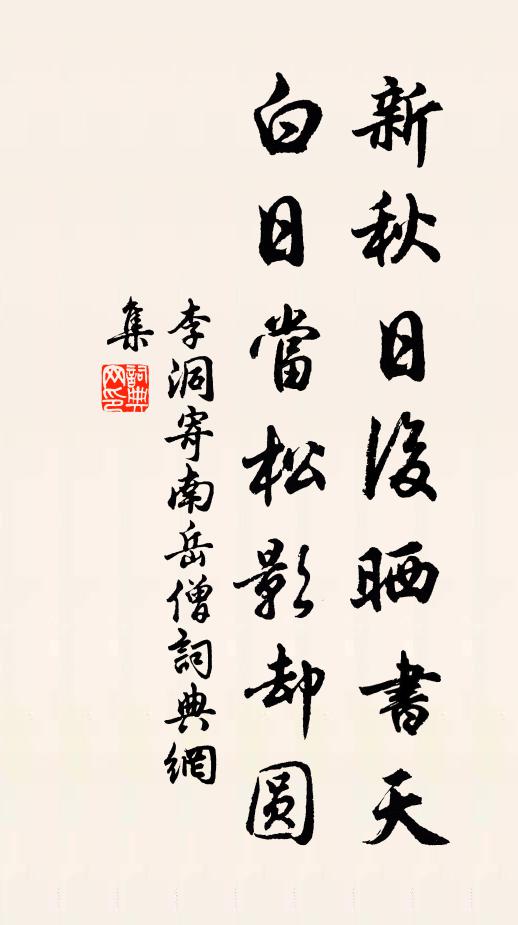 新秋日後晒書天
白日當松影却圆
李洞寄南岳僧詞典網
集
詞典网印